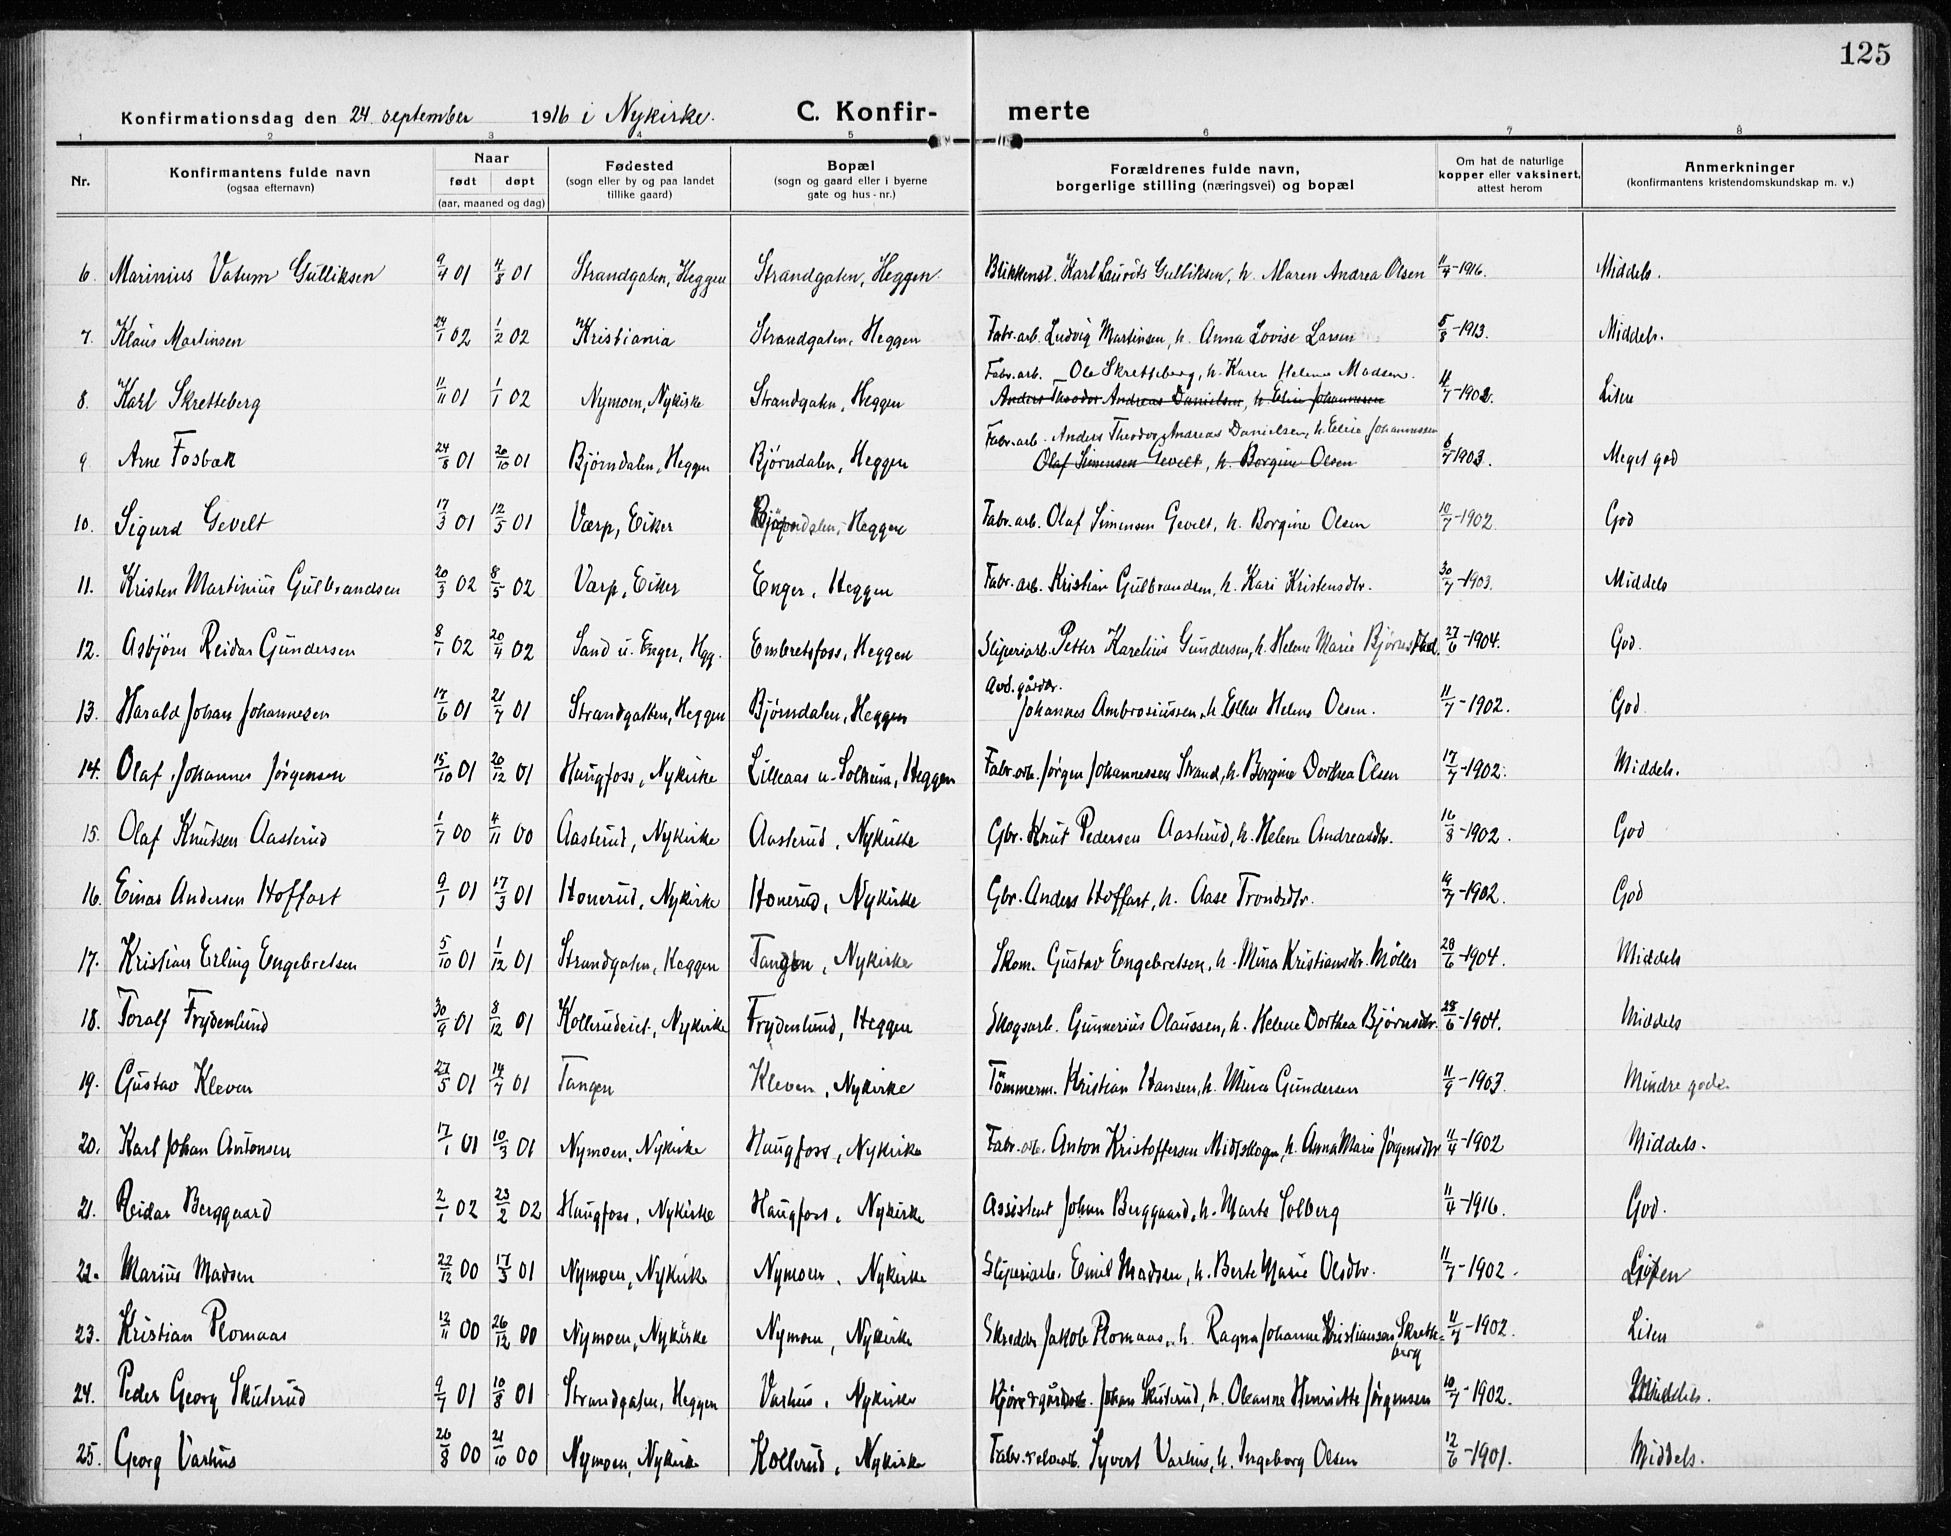 125
Konfirmationsdag den 24. september 1916 i Nykirke. C. Konfir- merte
1 2 3 4 5 6 7 8
Nr. Konfirmantens fulde navn (ogsaa efternavn) Naar født døpt (aar, maaned og dag) Fødested (sogn eller by og paa landet tillike gaard) Bopæl (sogn og gaard eller i byerne gate og hus-nr.) Forældrenes fulde navn, borgerlige stilling (næringsvei) og bopæl Om hat de naturlige kopper eller vaksinert, attest herom Anmerkninger (konfirmantens kristendomskundskap m. v.)
6. Marinius Vatum Gulliksen 9/4 01 4/8 01 Strandgaten, Heggen Strandgaten, Heggen. Blikkensl. Karl Lauvits Gulliksen, h. Maren Andrea Olsen 11/4-1916. Middels.
7. Klaus Martinsen 24/1 02 1/2 02 Kristiania Strandgaten, Heggen Fabr.arb. Ludvig Martinsen, h. Anna Lovise Larsen 5/8-1913. Middels.
Fabr.arb. Ole Skretteberg, h. Karen Helene Madsen.
8. Karl Skretteberg 11/11 01 1/1 02 Nymoen, Nykirke Strandgaten, Heggen Anders Theodor Andreas Danielsen, h. Elise Johannesen 11/7-1902. Liten
Fabr.arb. Anders Theodor Andreas Danielsen, h. Elise Johannessen
9 Arne Fosbak 24/8 01 20/10 01 Bjørndalen, Heggen Bjørndalen, Heggen Olaf Simensen Gevelt, h. Borgine Olsen 6/7 1903. Meget god
10. Sigurd Gevelt 17/3 01 12/5 01 Værp, Eiker Bjørndalen, Heggen Fabr.arb. Olaf Simensen Gevelt, h. Borgine Olsen 10/7-1902. God
11. Kristen Martinius Gulbrandsen 20/3 02 8/5 02 Varp, Eiker Enger, Heggen Fabr.arb. Kristian Gulbrandsen, h. Kari Kristensdtr. 30/7-1903. Middels
12. Asbjørn Reidar Gundersen 8/1 02 20/4 02 Sand u. Enger, Hgg. Embretsfoss, Heggen Sliperiarb. Petter Karelius Gundersen, h. Helene Marie Bjørnstad. 27/6-1904. God.
Avd. gårdbr.
13. Harald Johan Johannesen 17/6 01 21/7 01 Strandgatten, Heggen Bjørndalen, Heggen Johannes Ambrosiussen, h. Ellen Helene Olsen. 11/7-1902. God
14. Olaf Johannes Jørgensen 15/10 01 26/12 01 Haugfoss, Nykirke Lilleaas u. Solheim, Heggen Fabr.arb. Jørgen Johannessen Strand, h. Borgine Dorthea Olsen 17/7-1902. Middels.
15. Olaf Knutsen Aasterud 1/7 00 4/11 00 Aasterud, Nykirke Aasterud, Nykirke Gbr. Knut Pedersen Aasterud, h. Helene Andreasdtr. 16/8-1902. God
16. Einar Andersen Hoffart 9/1 01 17/3 01 Honerud, Nykirke Honerud, Nykirke Gbr. Anders Hoffart, h. Aase Trondsdtr. 19/7-1902. God
17. Kristian Erling Engebretsen 5/10 01 1/12 01 Strandgaten, Heggen Tangen, Nykirke Skom. Gustav Engebretsen, h. Mina Kristiansdtr. Møller 28/6-1904. Middels
18. Toralf Frydenlund 30/9 01 8/12 01 Kollerudeiet, Nykirke Frydenlund, Heggen Skogsarb. Gunnerius Olaussen, h. Helene Dorthea Bjørnsdtr. 28/6-1904. Middels
19. Gustav Kleven 27/5 01 14/7 01 Tangen Kleven, Nykirke Tømmerm. Kristian Hansen, h. Mina Gundersen 11/9-1903. Mindre godt.
20. Karl Johan Antonsen 17/1 01 10/3 01 Nymoen, Nykirke Haugfoss, Nykirke Fabr.arb. Anton Kristoffersen Midtskogen, h. Anna Marie Jørgensdtr 11/4-1902 Middels.
21. Reidar Berggaard 2/1 02 23/2 02 Haugfoss, Nykirke Haugfoss, Nykirke Assistent Johan Berggaard, h. Marte Solberg 11/4-1916. God.
22. Marius Madsen 22/12 00 17/3 01 Nymoen, Nykirke Nymoen, Nykirke Sliperiarb. Emil Madsen, h. Berte Marie Olsdtr. 11/7-1902. Liten
23. Kristian Plomaas 12/11 00 26/12 00 Nymoen, Nykirke Nymoen, Nykirke Skredder Jakob Plomaas, h. Ragna Johanne Kristiansen Skrette- 11/7-1902. Liten
berg
24. Peder Georg Skuterud 9/7 01 10/8 01 Strandgaten, Heggen Varhus, Nykirke Kjøre & gårdarb. Johan Skuterud, h. Oleanna Henriette Jørgensen 10/7-1902. Middels.
25. Georg Varhus 26/8 00 21/10 00 Nymoen, Nykirke Kollerud, Nykirke Syvert Varhus, h. Ingeborg Olsen 12/6-1901. Middels.